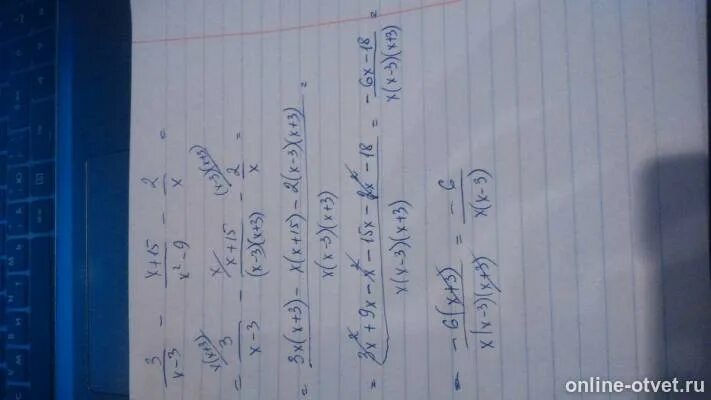 3/(x-3) - (x+15)/(x²-9) - 2/x =
= 3/(x-3) x(x+3) - (x+15)/((x-3)(x+3)) x - 2/x (x-3)(x+3) =
= (3x(x+3) - x(x+15) - 2(x-3)(x+3))/(x(x-3)(x+3)) =
= (3x² + 9x - x² - 15x - 2x² - 18)/(x(x-3)(x+3)) = (-6x-18)/(x(x-3)(x+3)) =
= -6(x+3)/(x(x-3)(x+3)) = -6/(x(x-3))
online-otvet.ru